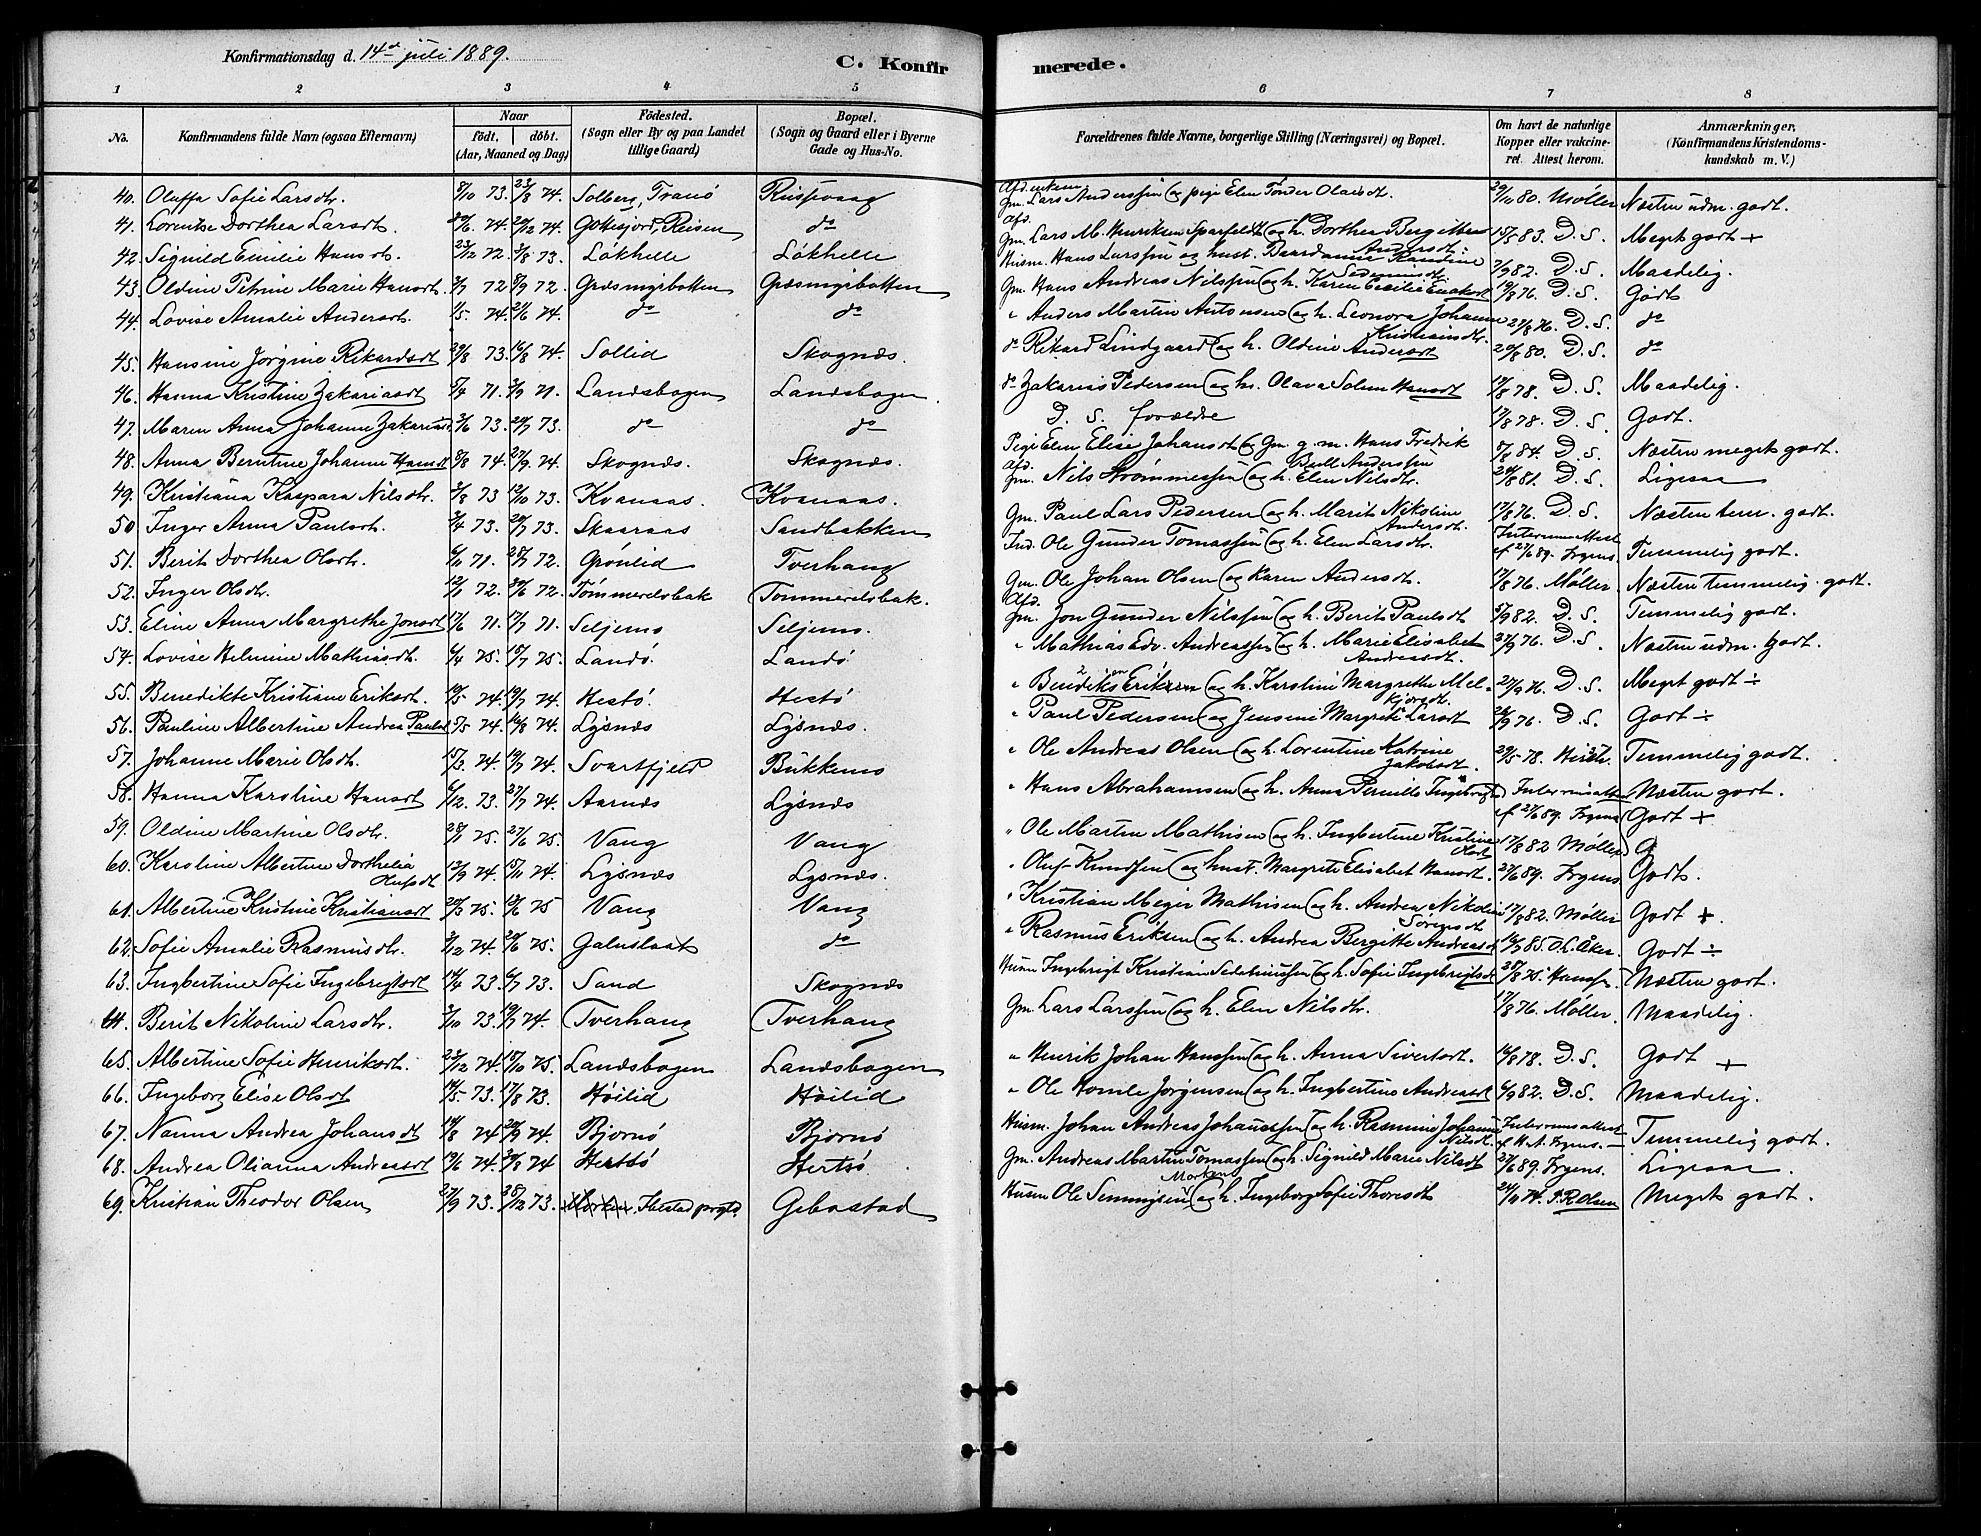 Konfirmationsdag d. 14de juli 1889.
C. Konfirmerede.
1 2 3 4 5 6 7 8
No. Konfirmandens fulde Navn (ogsaa Efternavn) Naar født, døbt. (Aar, Maaned og Dag) Fødested. (Sogn eller By og paa Landet tillige Gaard) Bopæl. (Sogn og Gaard eller i Byerne Gade og Hus-No. Forældrenes fulde Navne, borgerlige Stilling (Næringsvei) og Bopæl. Om havt de naturlige Kopper eller vakcineret. Attest herom. Anmærkninger, (Konfirmandens Kristendomskundskab m. V.)
40. Oluffa Sofie Larsdtr. 8/10 73. 23/8 74. Solberg, Tranø Afd. enkem. Gm. Lars Anderssen og pige Elen Tønder Olaisdt. 29/10 80. Møller Næsten udm. godt.
41. Lorentse Dorthea Larsdt. 30/6 74. 20/12 74. Gottesjord, Reisen do Afd. Gm. Lars M. Henriksen Sparfeldt og h. Dorthea Bergitte Andersdt. 15/5 83. D. S. Meget godt +
42. Signild Emilie Hansdt. 23/12 72. 3/8 73. Løkhelle Løkhelle Husm. Hans Larssen og hust. 7/9 82. D. S. Maadelig.
43. Oldine Petrine Marie Hansdt. 3/7 72 8/9 72. Græsmyrbotten Græsmyrbotten Gm. Hans Andreas Nilssen og h. Karen Cecilie 19/8 76. D. S. Godt
44. Lovise Amalie Andersdt. 1/5. 74. 21/6 74. do do " Anders Martin Antonsen og h. Leonora Johanne Kristiansdtr. 27/8 76. D. S. do
45. Hansine Jørgine Rikardsdt 29/8 73. 16/8 74. Sollid Skognæs. do Rikard Lindgaard og h. Oldine Andersdt 20/8 80. D. S. do
46. Hanna Kristine Zakariasdt 5/4 71. 2/7 71. Landsbogen Landsbogen. do Zakarias Pedersen og h. Olava Solem Hansdt 17/8 78. D. S. Maadelig.
47. Maren Anna Johanne Zakariasd 3/6 73. 20/7 73. do do D. S. forældre 17/8 78. D. S. Godt.
48. Anna Berntine Johanne Hansdt 8/8 74. 27/9 74. Skognæs. Skognæs. Pige Elen Elise Johansdt og Gm. g. m. Hans Fredrik Bull Anderssen 8/8 84. D. S. Næsten meget godt.
49. Kristiana Kaspara Nilsdtr. 3/8 73 12/10 73. Kvanaas. Kvanaas. Afd. Gm. Nils Strømmessen og h. Elen Nilsdtr. 20/8 81. D. S. Ligesaa
50. Inger Anna Paulsdt. 3/4 73. 20/7 73. Skaaraas Sandbakken Gm. Paul Lars Pedersen og h. Marit Nikoline Andersdt. 17/8 76. D. S. Næsten tem. godt.
51. Berit Dorthea Olsdtr. 71. 28/7 72. Grønlid Tverhaug Ind. Ole Gunder Tomassen og h. Elen Larsdtr. Interimsattest af 27/6 89. Irgens. Temmelig godt.
52. Inger Olsdtr. 72. 30/6 72. Tømmerelsbak Tømmerelsbak. Gm. Ole Johan Olsen og Karen Andersdt. 17/8 76. Møller. Næsten temmelig godt.
53. Eline Anna Margrethe Jonsdt 17/6 71. 17/7 71. Seljemo Seljemo. Afd. Gm. Jon Gunder Nilssen og h. Berit Paulsdt 5/9 82. D. S. Temmelig godt.
54. Lovise Helmine Mathiasdt. 6/4 75. 18/7 75. Landø. Landø " Mathias Edv. Andreassen og h. Marie Elisabet Andreasdt. 27/9 76. D. S. Næsten udm. godt.
55. Benedikte Kristiane Eriksdt. 10/5 74. 19/7 74. Hestø. Hestø " Erik Benediksen og h. Karoline Margrethe Melkjorsdt. 27/9 76. D. S. Meget godt ÷
56. Pauline Albertine Andrea Paulsd 5/5 74. 16/8 74. Lysnæs Lysnæs. " Paul Pedersen og Jensine Margrete Larsdt 26/9 76. D. S. Godt ÷
57. Johanne Marie Olsdt. 15/3 74. 19/7 74. Svartfjeld Bukkemo " Ole Andreas Olsen og h. Lorentine Katrine Jakobsdt. 29/5 78. Temmelig godt.
58. Hanna Karoline Hansdt 6/12 73. 27/7 74. Aarnæs Lysnæs " Hans Abrahamsen og h. Anna Pernille Ingebrigtsd Interimsattest af 27/6 89. Irgens Næsten godt.
59. Oldine Martine Olsdtr. 28/1 75. 27/6 75. Vang Vang " Ole Martin Mathisen og h. Ingbertine Kristine Olsdt 17/8 82 Møller Godt +
60. Karoline Albertine Dorthelia Olufsdt 13/9 74. 15/11 74. Lysnæs Lysnæs. " Oluf Knudsen og hust. Margrete Elisabet Hansdt. 27/6 89. Irgens. Godt.
61. Albertine Kristine Kristiansdt 20/3 75. 13/6 75 Vang Vang " Kristian Meyer Mathisen og h. Andrea Nikoline Sørensdt 17/8 82. Møller Godt +.
62. Sofie Amalie Rasmusdtr. 3/12 74. 20/6 75. Galnslaat do " Rasmus Eriksen og h. Andrea Bergitte Andreasdt 16/7 85. Aker. Godt ÷
63. Ingbertine Sofie Ingebrigtsdt 14/4 73. 6/7 73. Sand Skognæs Husm. Ingebrigt Kristian og h. Sofie Ingebrigtsdt 28/8 75. Hanssen. Næsten godt.
64. Berit Nikoline Larsdtr. 3/10 73. 19/7 74. Tverhaug Tverhaug Gm. Lars Larssen og h. Elen Nilsdtr. 17/8 76. Møller. Maadelig.
65. Albertine Sofie Henriksdt. 23/12 74. 10/10 75. Landsbogen Landsbogen " Henrik Johan Hanssen og h. Anna Sivertsdt. 16/8 78. D. S. Godt +
66. Ingeborg Elise Olsdt 14/5 73. 17/8 73. Høilid Høilid " Ole Homle Jørgensen og h. Ingbertine Andreasdt 6/9 82. D. S. Maadelig.
67. Nanna Andrea Johansdt 14/8 74. 20/9 74. Bjornø Bjornø Husm. Johan Andreas Johanessen og h. Rasmine Johanne Nilsdt. Interimsattest af Irgens. Temmelig godt.
68. Andrea Olianna Andreasdt 19/6 74. 30/8 74 Hertsø Hertsø. Gm. Andreas Martin Tomassen og h. Signild Marie Nilsdt 27/6 89. Irgens. Ligesaa.
69. Kristian Theodor Olsen 27/9 73. 28/12 73. Ibestad prgld. Gebostad Husm Ole Semmigsen Morken og h. Ingeborg Sofie Thoresdt 24/11 74. P. R. Olsen Meget godt.